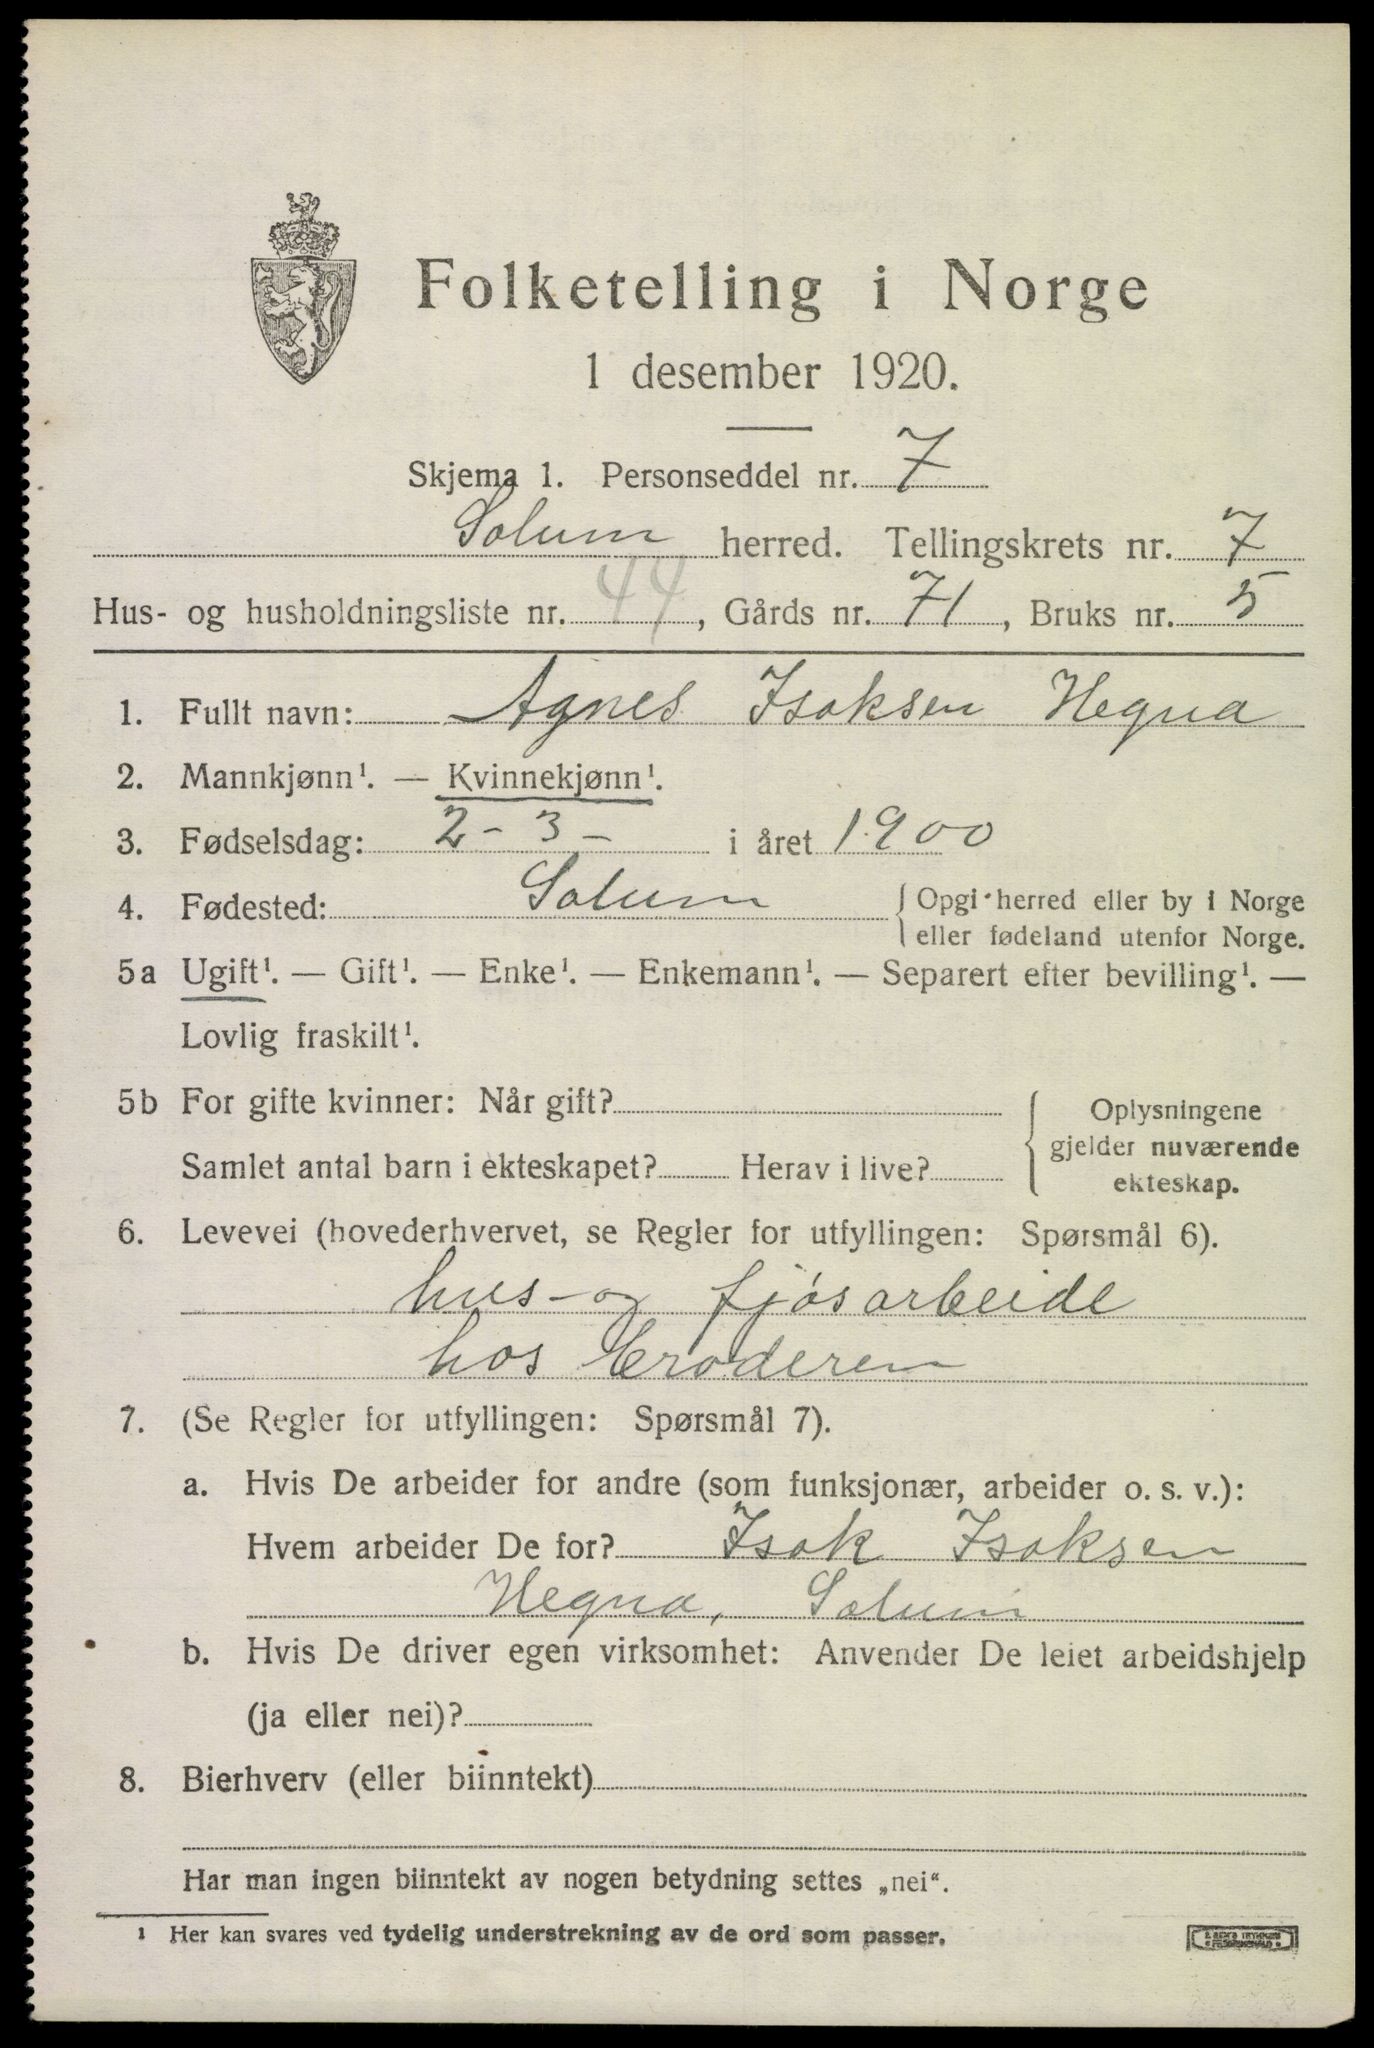 Folketelling i Norge
1 desember 1920.
Skjema 1. Personseddel nr. 7
Solum herred. Tellingskrets nr. 7
Hus- og husholdningsliste nr. 44, Gårds nr. 71, Bruks nr. 5
1. Fullt navn: Agnes Isaksen Hegna
2. Mannkjønn¹. — Kvinnekjønn¹.
3. Fødselsdag: 2 - 3 - i året 1900
4. Fødested: Solum { Opgi herred eller by i Norge
eller fødeland utenfor Norge.
5a Ugift¹. — Gift¹. — Enke¹. — Enkemann¹. — Separert efter bevilling¹. —
Lovlig fraskilt¹.
5b For gifte kvinner: Når gift?
Samlet antal barn i ekteskapet? Herav i live?
Oplysningene
gjelder nuværende
ekteskap.
6. Levevei (hovederhvervet, se Regler for utfyllingen: Spørsmål 6).
hus- og fjósarbeide
hos broderen
7. (Se Regler for utfyllingen: Spørsmål 7).
a. Hvis De arbeider for andre (som funksjonær, arbeider o. s. v.):
Hvem arbeider De for? Isak Isaksen
Hegna, Solum
b. Hvis De driver egen virksomhet: Anvender De leiet arbeidshjelp
(ja eller nei)?
8. Bierhverv (eller biinntekt)
Har man ingen biinntekt av nogen betydning settes „nei“.
¹ Her kan svares ved tydelig understrekning av de ord som passer.